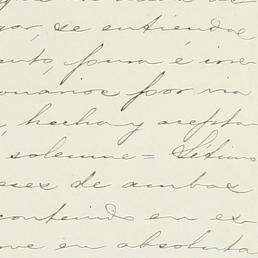 se entiende
pura é irre
por via
, hecha y acepta
solemne = Sétimo
de ambas
contenido en es
en absoluta